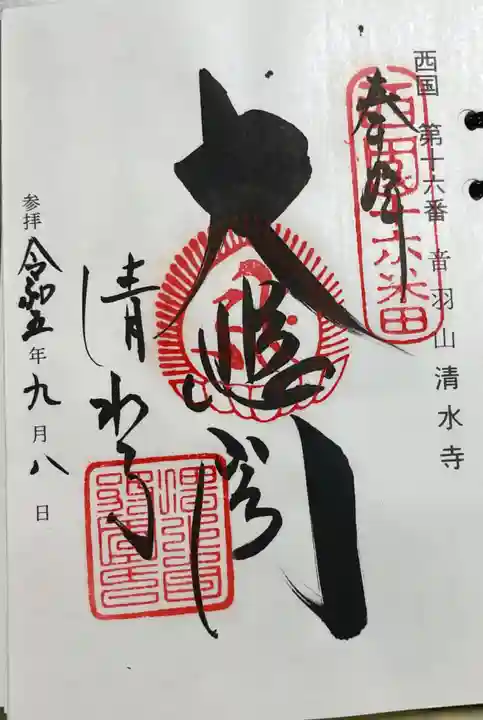 西国 第十六番 音羽山清水寺
奉拝
西国十六番
大悲閣
清水寺
参拝 令和五年九月八日